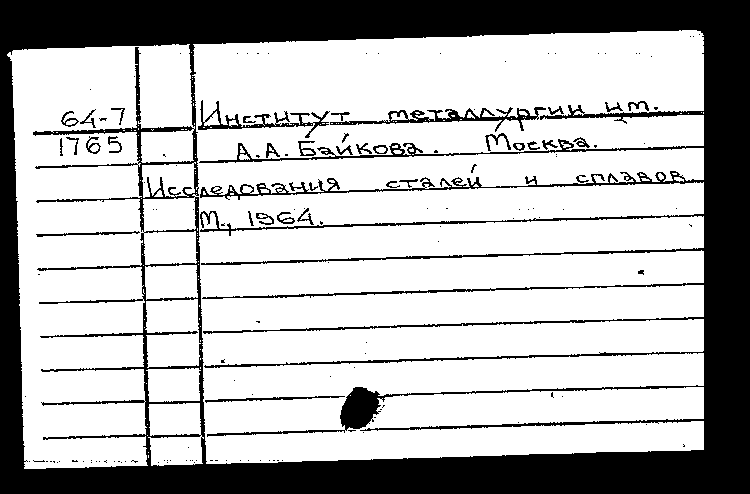 64-7 Институт металлургии им.
1765 А.А. Байкова. Москва.
Исследования сталей и сплавов
М., 1964.